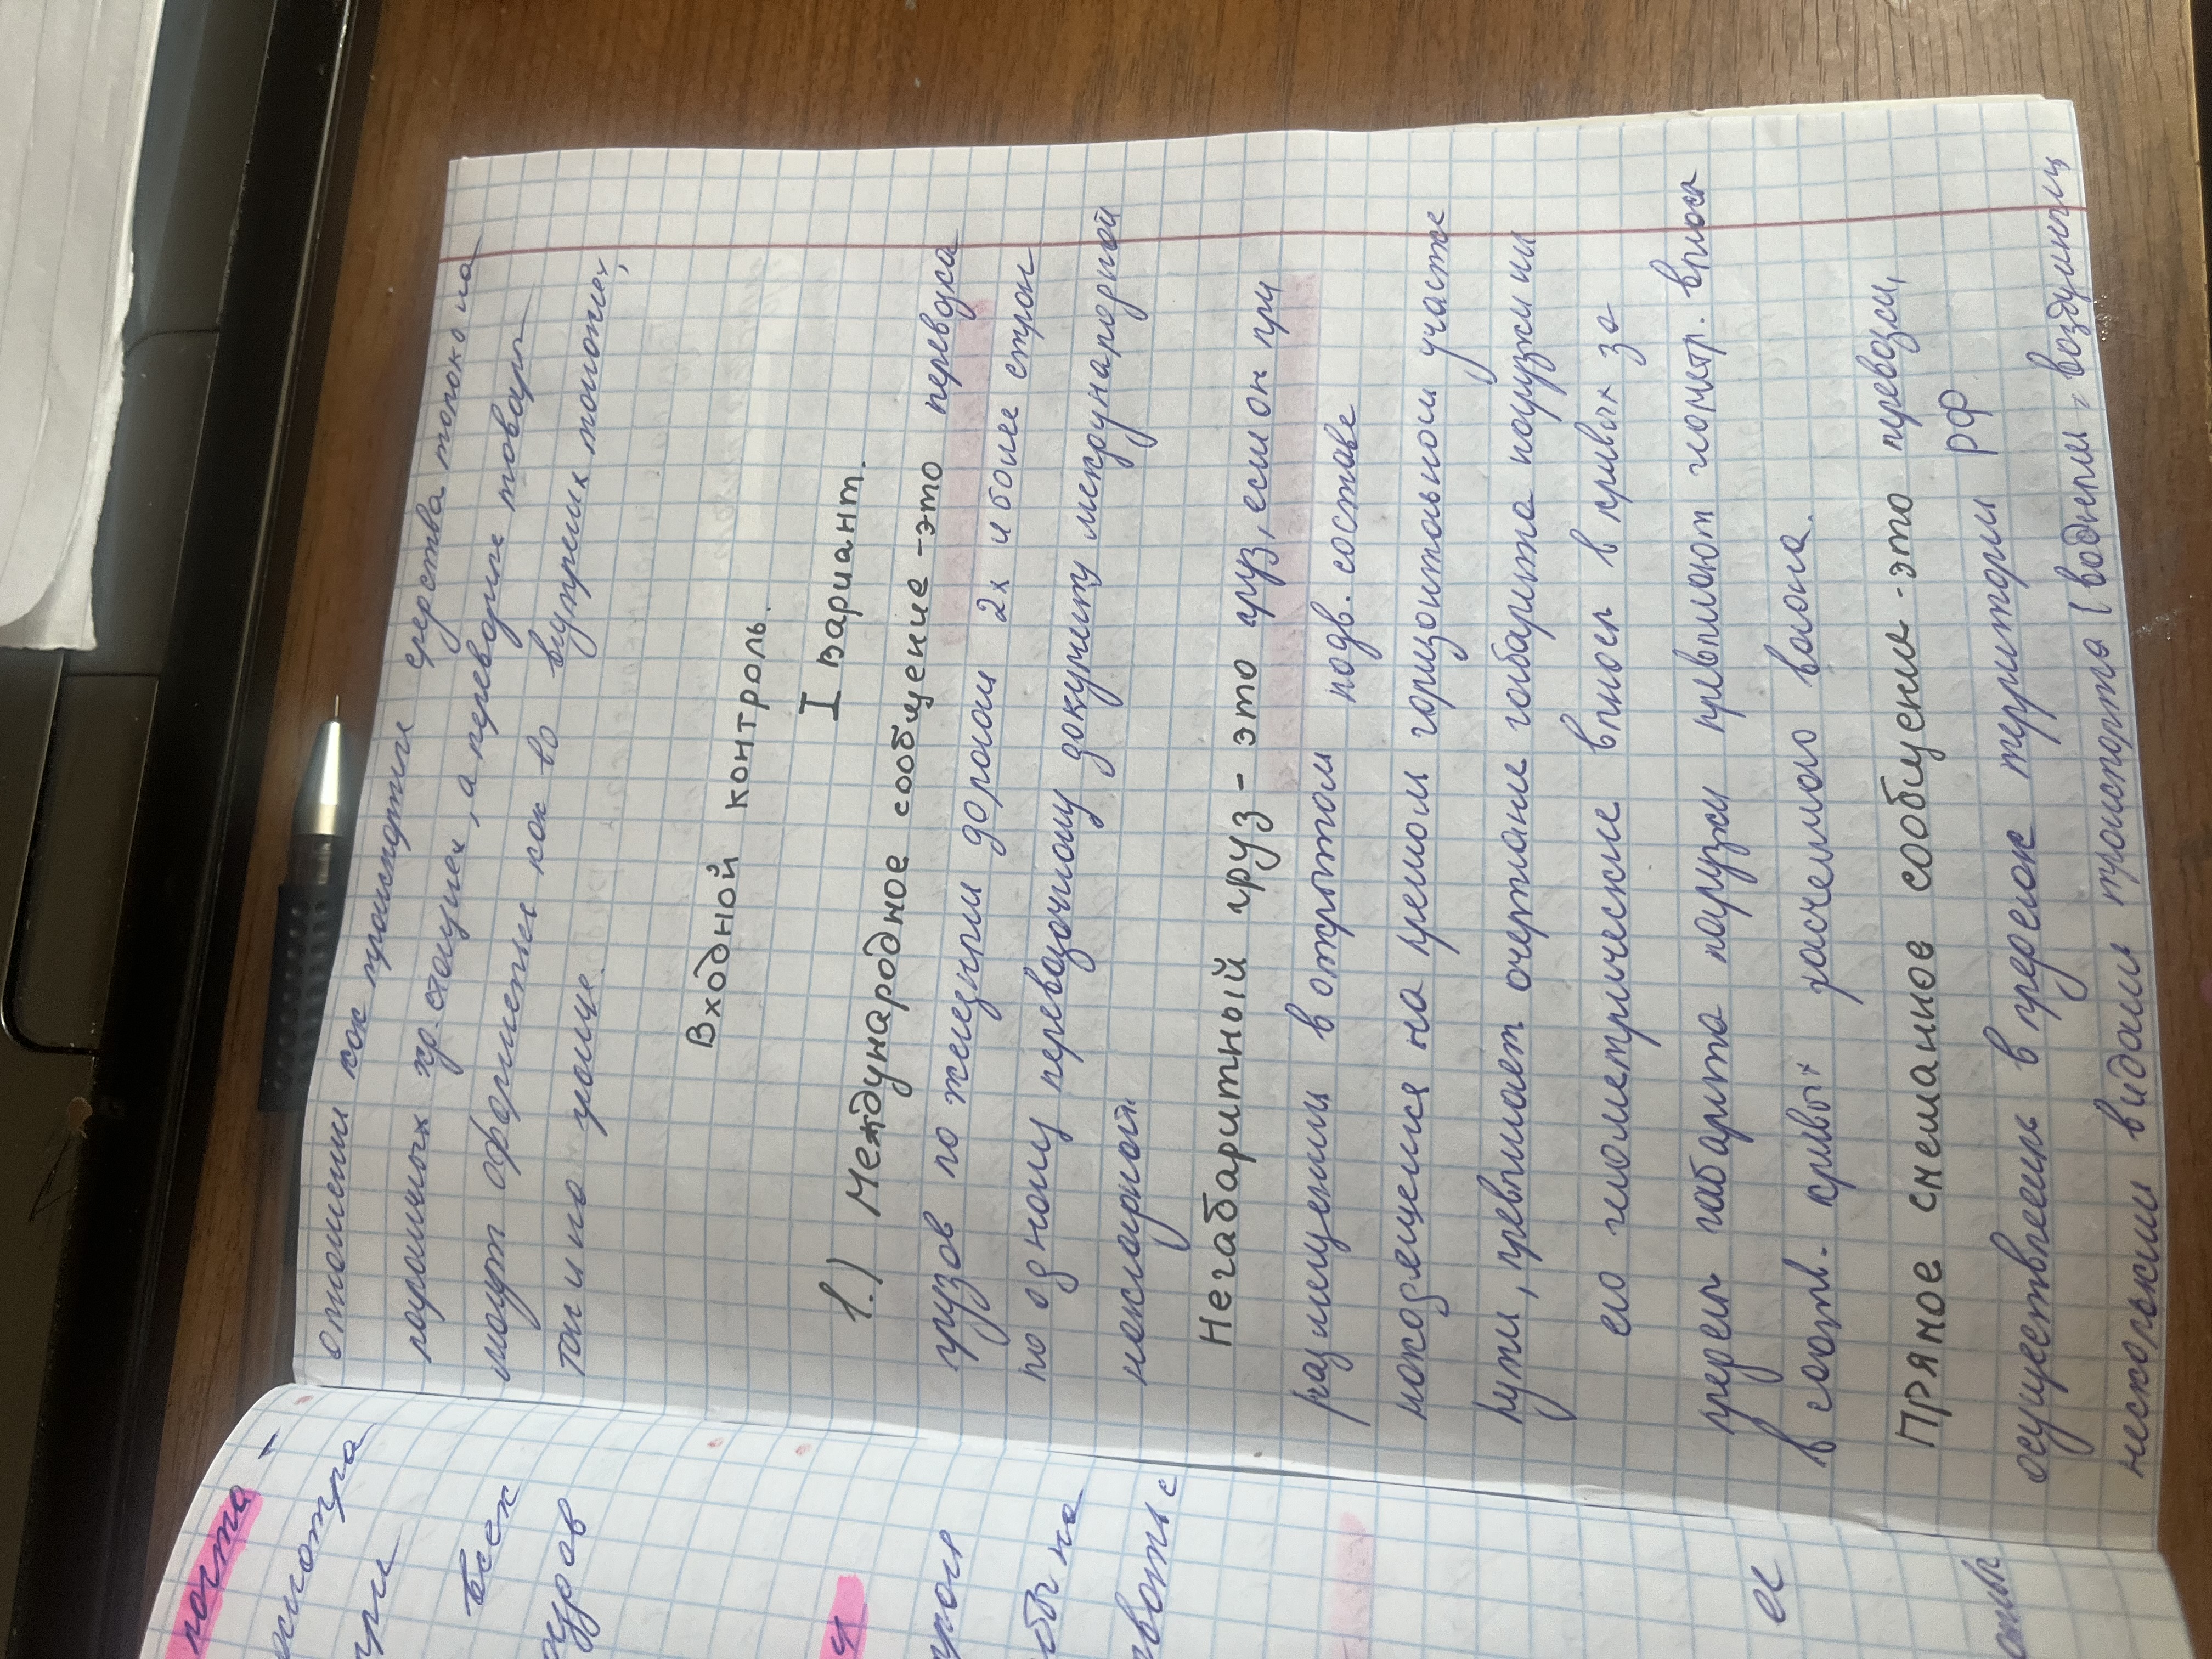 отношении как транспортн средства только на
гр. станциях, а переводные товары
могут оформиться как во внутрених поностях,
так и на улице.
Входной контроль.
I вариант.
1.) Международное сообщение - это перевозка
грузов по железнгм дорогам 2х и более стран
по одному перевозочному документу международной
Негабаритный груз - это груз, если он при
размещении в открытом подв. составе
находещемся на премом горизонтальном участке
пути, превышает очертание габарита погрузки ил
его геометрические вынось в кривых за
предел габарита погрузки превышают геометр. вынос
в соотв. кривых расчетного вагона.
Прямое смешанное сообщение - это превозки,
осуществляемь в пределах территории РФ
несколькими видами транспорта (воднгм, воздушнгм
почта -
всех
ее